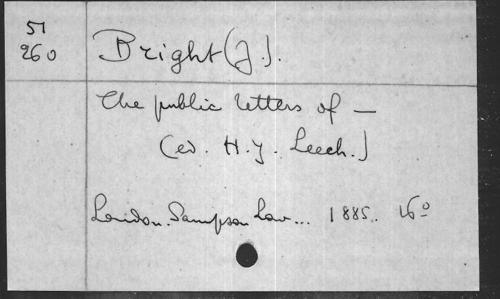 51
260
Bright (J.).
The public letters of —
(ed. H. J. Leech.)
London. Sampson Low... 1885. 16º